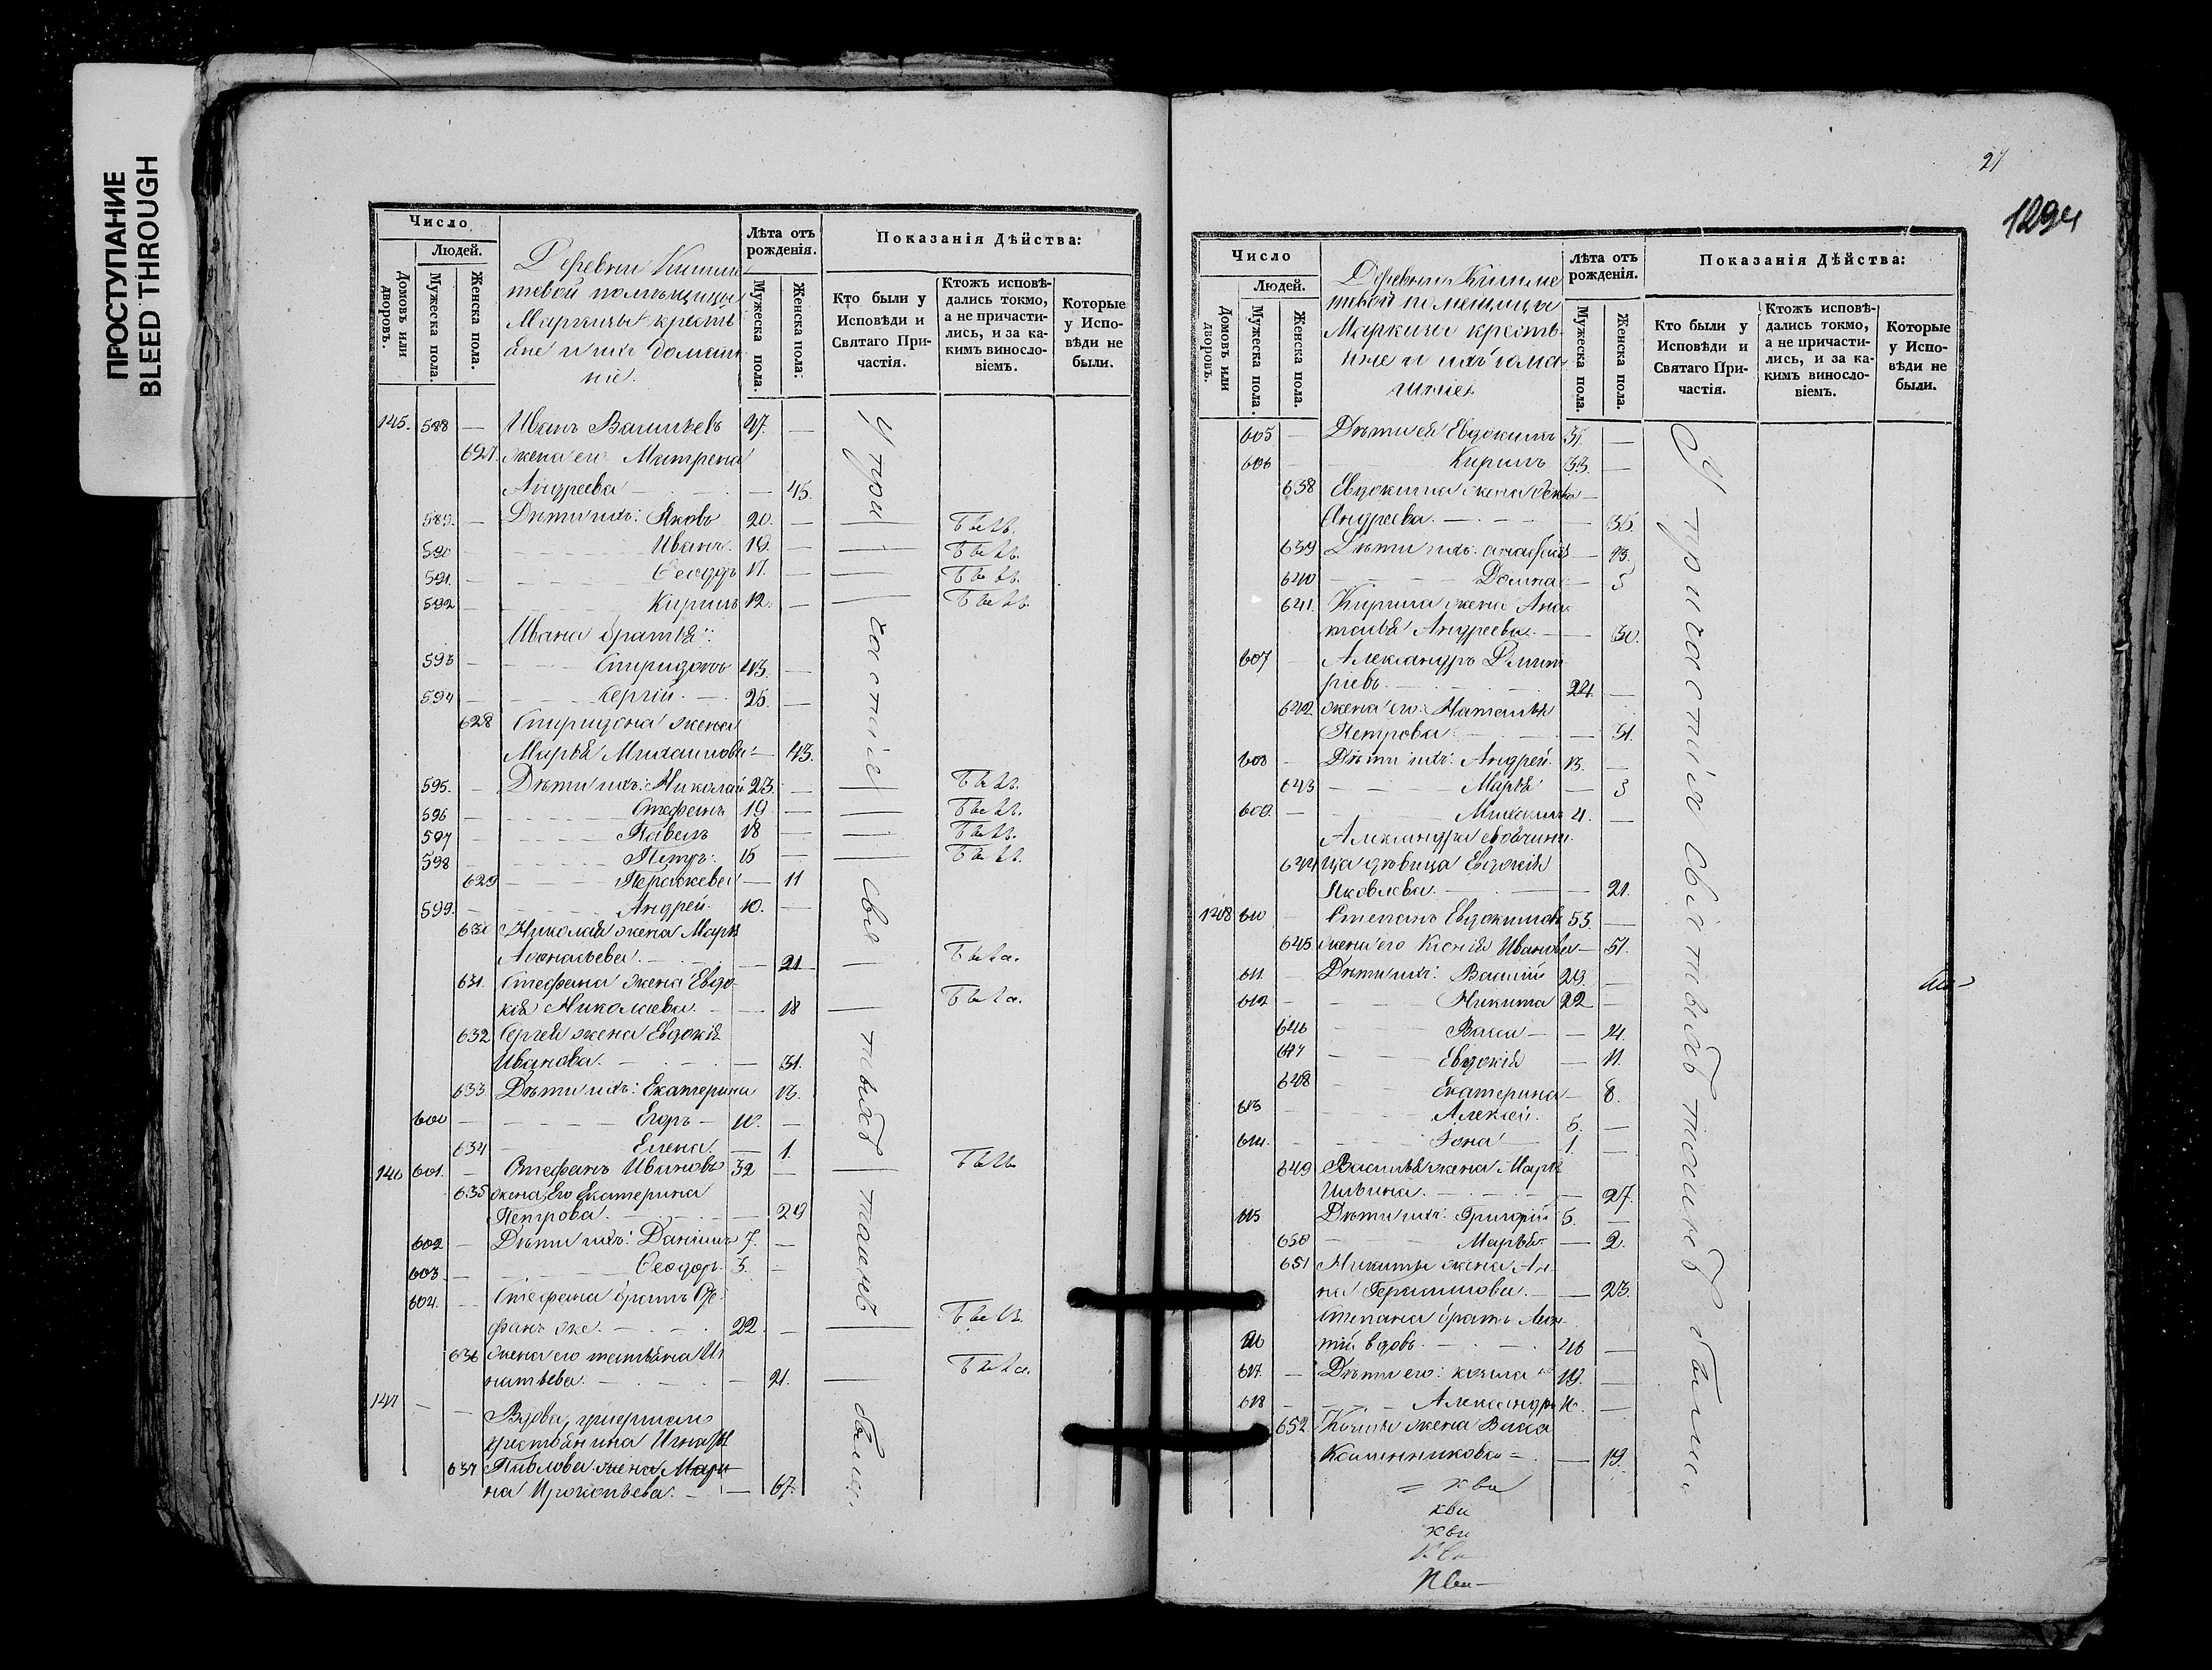 ПРОСТУПАНИЕ
BLEED THROUGH
Число
Людей.
Домовъ или дворовъ.
Мужеска пола.
Женска пола.
Деревни
помѣщицы
кресть
яне и ихъ домаш
ніе.
Лѣта отъ рожденія.
Мужеска пола.
Женска пола:
Показанія Дѣйства:
Кто были у Исповѣди и Святаго Причастія.
Ктожъ исповѣдались токмо, а не причастились, и за какимъ винословіемъ.
Которые у Исповѣди не были.
145. 588 — Иванъ Васильевъ 47. —
627. жена его Матрена
Андреева — — 45.
589. — Дѣти ихъ: Яковъ 20. — Былъ.
590 — Иванъ. 18. — Былъ.
591. — Ѳеодоръ 17. — Былъ.
592 — Кирилъ 12. — Былъ.
Ивана братья:
593 — Спиридонъ 43. —
594 — Сергій. 25. —
628 Спиридона жена
Марья Михаилова — 43.
595. — Дѣти ихъ: Николай 23. — Былъ.
596 — Стефанъ 19 — Былъ.
597 — Павелъ 18 — Былъ.
598 — Петръ. 15 — Былъ.
629 — Параскева — 11
599. — Андрей. 10. —
630 Николая жена Марья
Аѳонасьева. — 21 Была.
631. Стефана жена Евдо-
кія Николаева. — 18 Была.
632 Сергея жена Евдокія
Иванова. — 31.
633 Дѣти ихъ: Екатерина 13.
600 — Егоръ — 10. —
634 — Елена. — 1.
146 601. — Стефанъ Ивановъ 32 — Былъ
635 жена Его Екатерина
Петрова. — 29
602 — Дѣти ихъ: Даніилъ 7. —
603. — Ѳеодоръ. 3. —
604. — Стефана братъ Сте
фанъ же. — 22. — Былъ.
636 жена его Татьяна Иг
натьева. — 21. Была.
147 — — Вдова,
крестьянина
637 Павлова жена Мари
на Прокопьева. — 67.
У при
частія
свя
тыхъ
таинъ
были.
21
1294
Число
Людей.
Домовъ или дворовъ.
Мужеска пола.
Женска пола.
Деревни
помещицы
кресть-
яне и ихъ дома
шніе
Лѣта отъ рожденія.
Мужеска пола.
Женска пола.
Показанія Дѣйства:
Кто были у Исповѣди и Святаго Причастія.
Ктожъ исповѣдались токмо, а не причастились, и за какимъ винословіемъ.
Которые у Исповѣди не были.
605 — Дѣти ея Евдокимъ 37. —
606 — Кирилъ 33. —
638 Евдокима жена —
Андреева. — 35.
639 Дѣти ихъ: — 13.
640 — Домна — 5
641. Кирила жена Ана
Андреева. — 30.
607 — Александръ Дмит
ріевъ. 24. —
642 жена его Наталья
Петрова — 31.
608 — Дѣти ихъ: Андрей. 13. —
643 — Марья — 3
609. — Михаилъ 4. —
Александра
644 ца дѣвица Евдокія
Яковлева. — 21.
148 610 — Степанъ Евдокимовъ 53. —
645. жена его Ксенія Иванова — 51.
611 — Дѣти ихъ: Василій 29. —
612 — Никита 22 —
646 — Васса — 14.
647 — Евдокія — 11.
648 — Екатерина — 8.
613 — Алексѣй. 5. —
614. — Іона 1. —
649 Василья жена Марья
Ильина. — 27.
615 Дѣти ихъ: Григорій 5. —
650 — Марья — 2.
651 Никиты жена Ан-
на Герасимова. — 23.
Степана братъ
616 вдовъ. 46 —
617. — Дѣти его: 19. —
618 — Александръ 16. —
652 жена Васса
— 19.
У причастія святыхъ таинъ были.